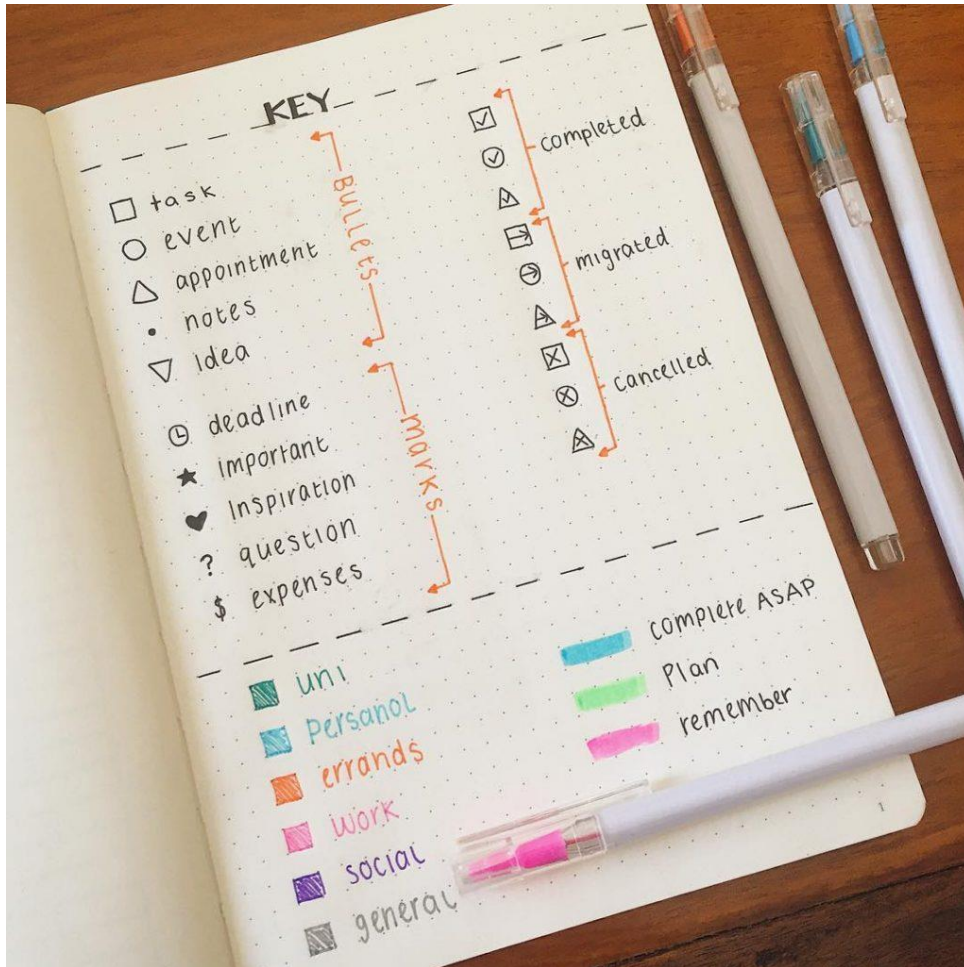 KEY
task
event
appointment
notes
idea
BULLETS
deadline
important
Inspiration
? question
$ expenses
marks
completed
migrated
cancelled
uni
Persanol
errands
work
social
general
complete ASAP
Plan
remember
1